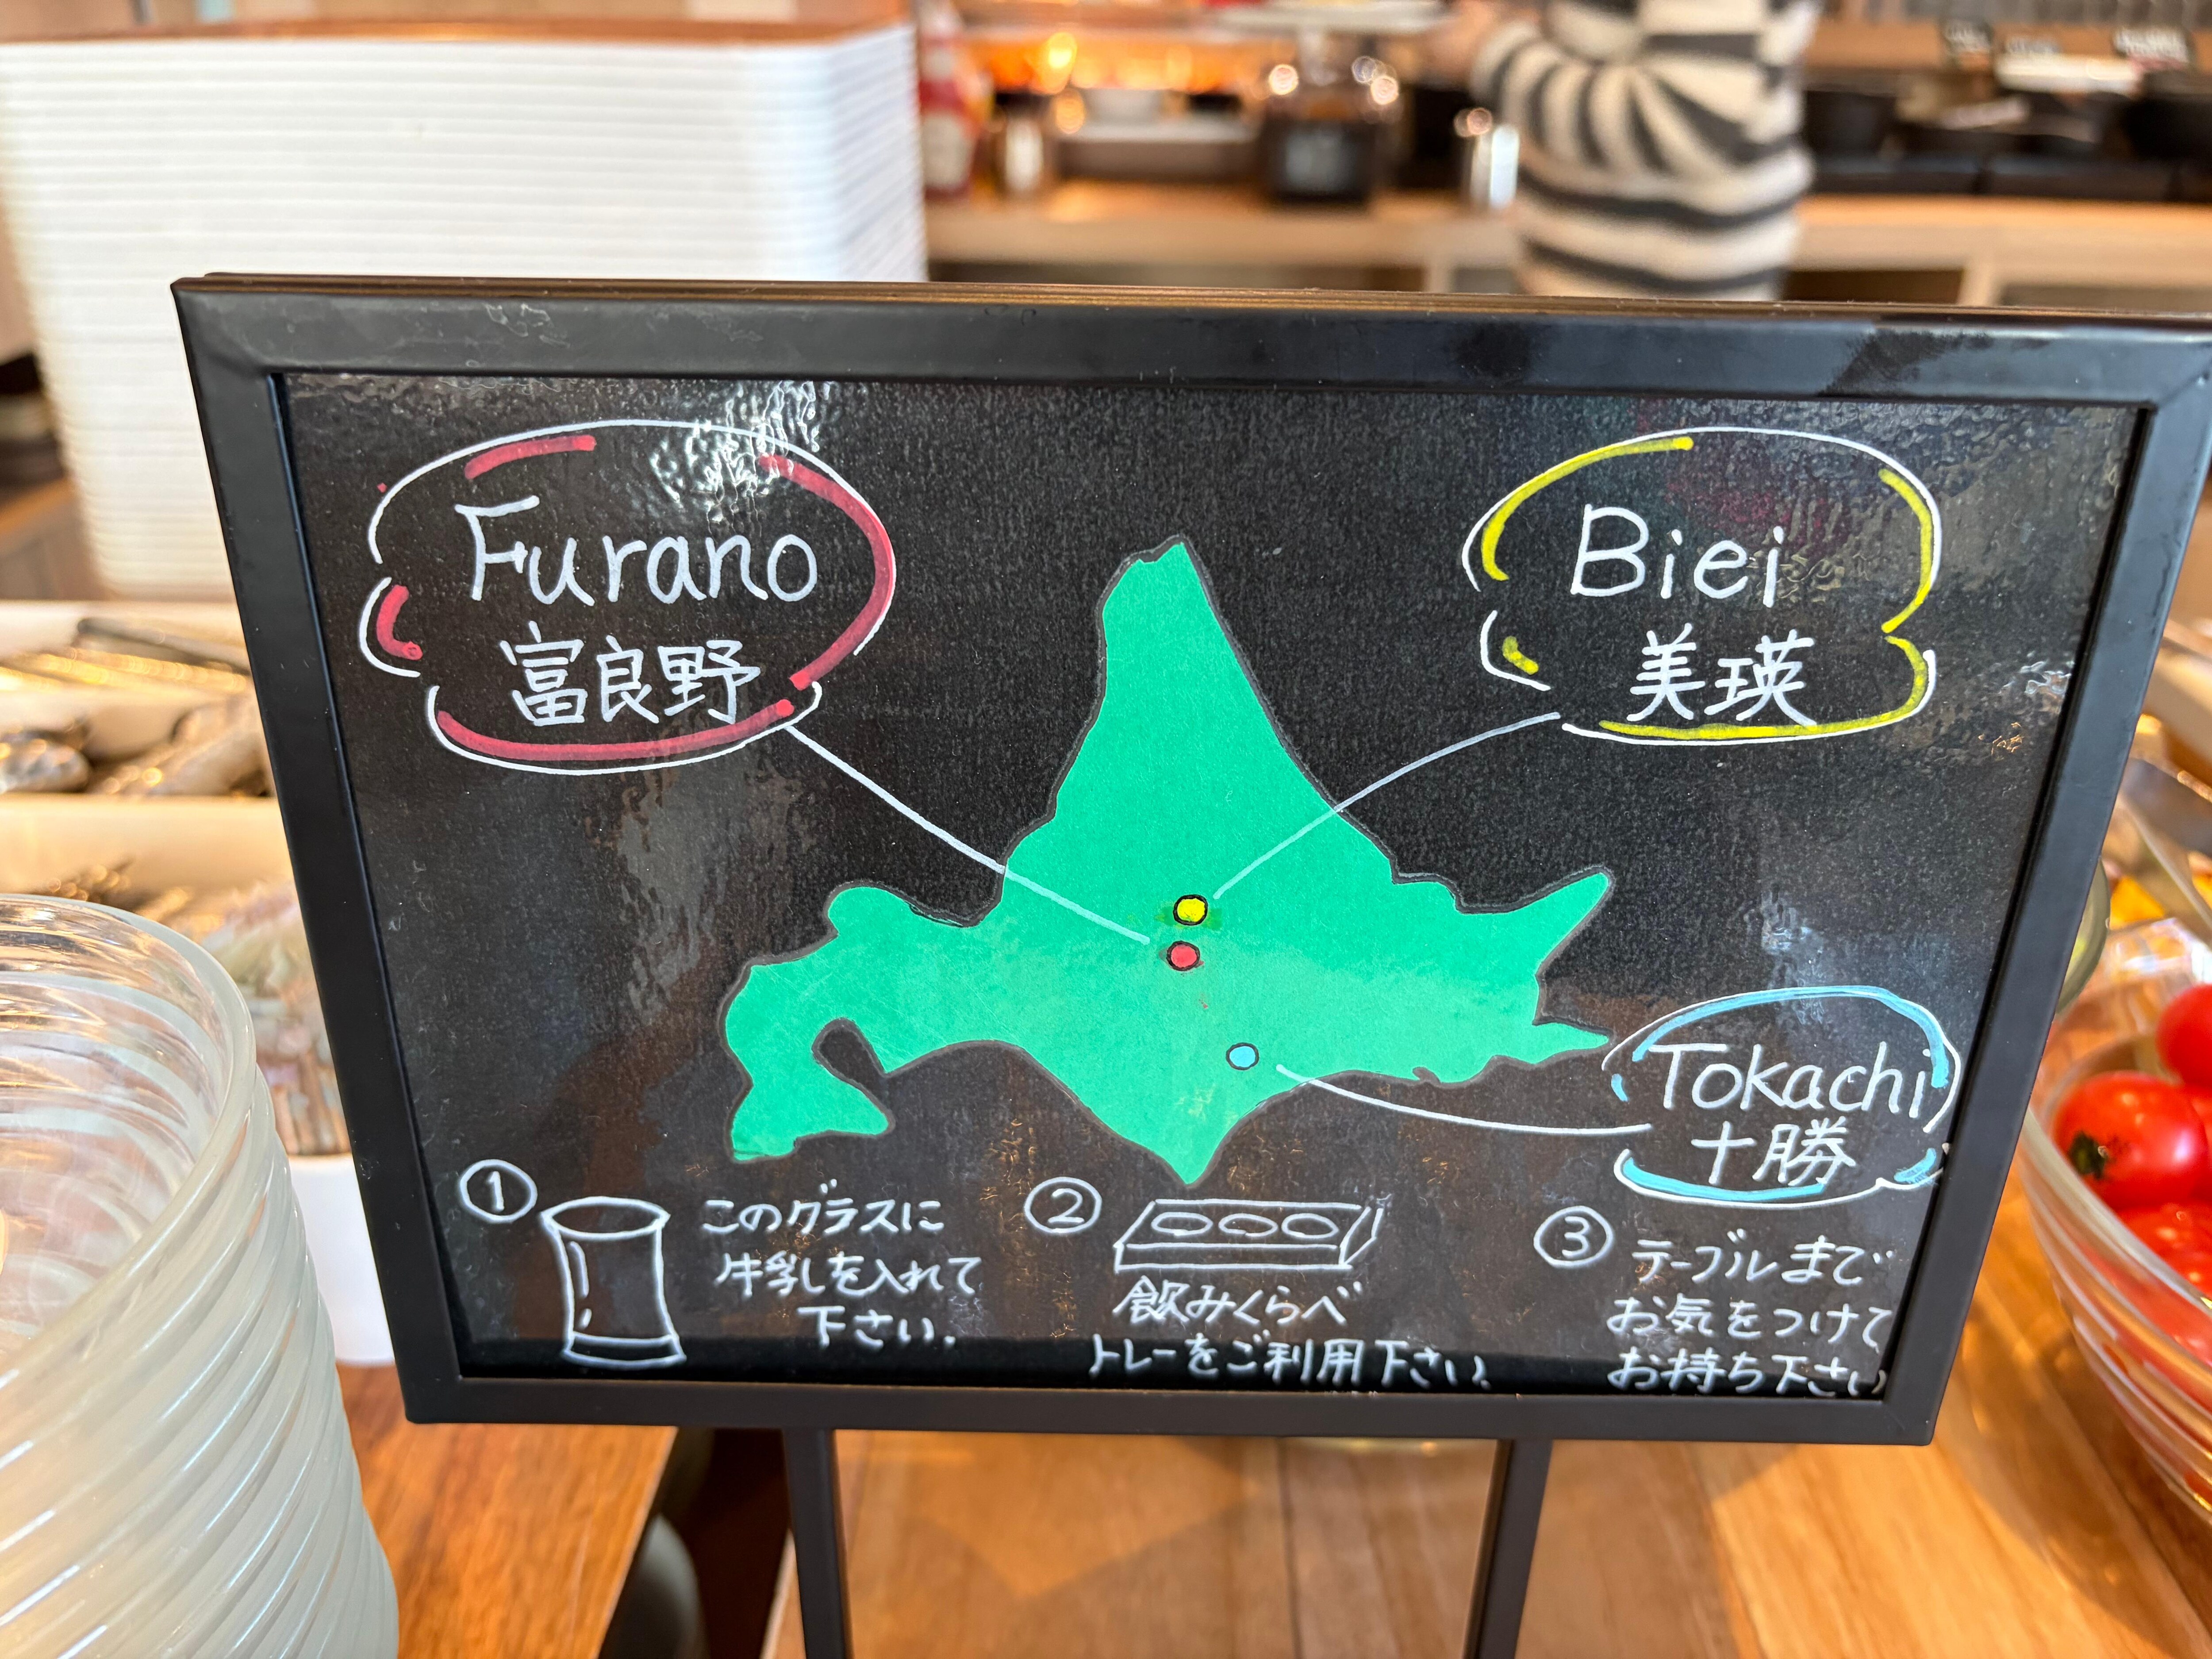 Furano
富良野
Biei
美瑛
Tokachi
十勝
①
このグラスに
牛乳を入れて
下さい.
②
飲みくらべ
トレーをご利用下さい.
③
テーブルまで
お気をつけて
お持ち下さい